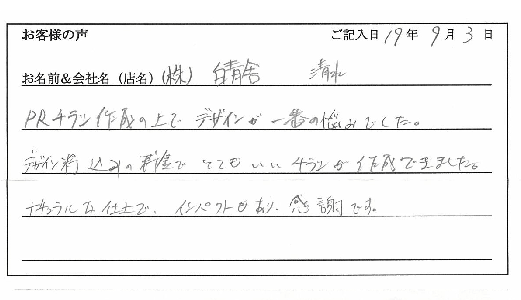 お客様の声 ご記入日 19年 9月 3日
お名前&会社名(店名)(株) 晴舎 清水
PRチラシ作成の上で デザインが 一番の悩みでした。
デザイン料 込みの 料金で とてもいい チラシが 作成できました。
ナチュラルな 仕上で、インパクトもあり、感謝です。